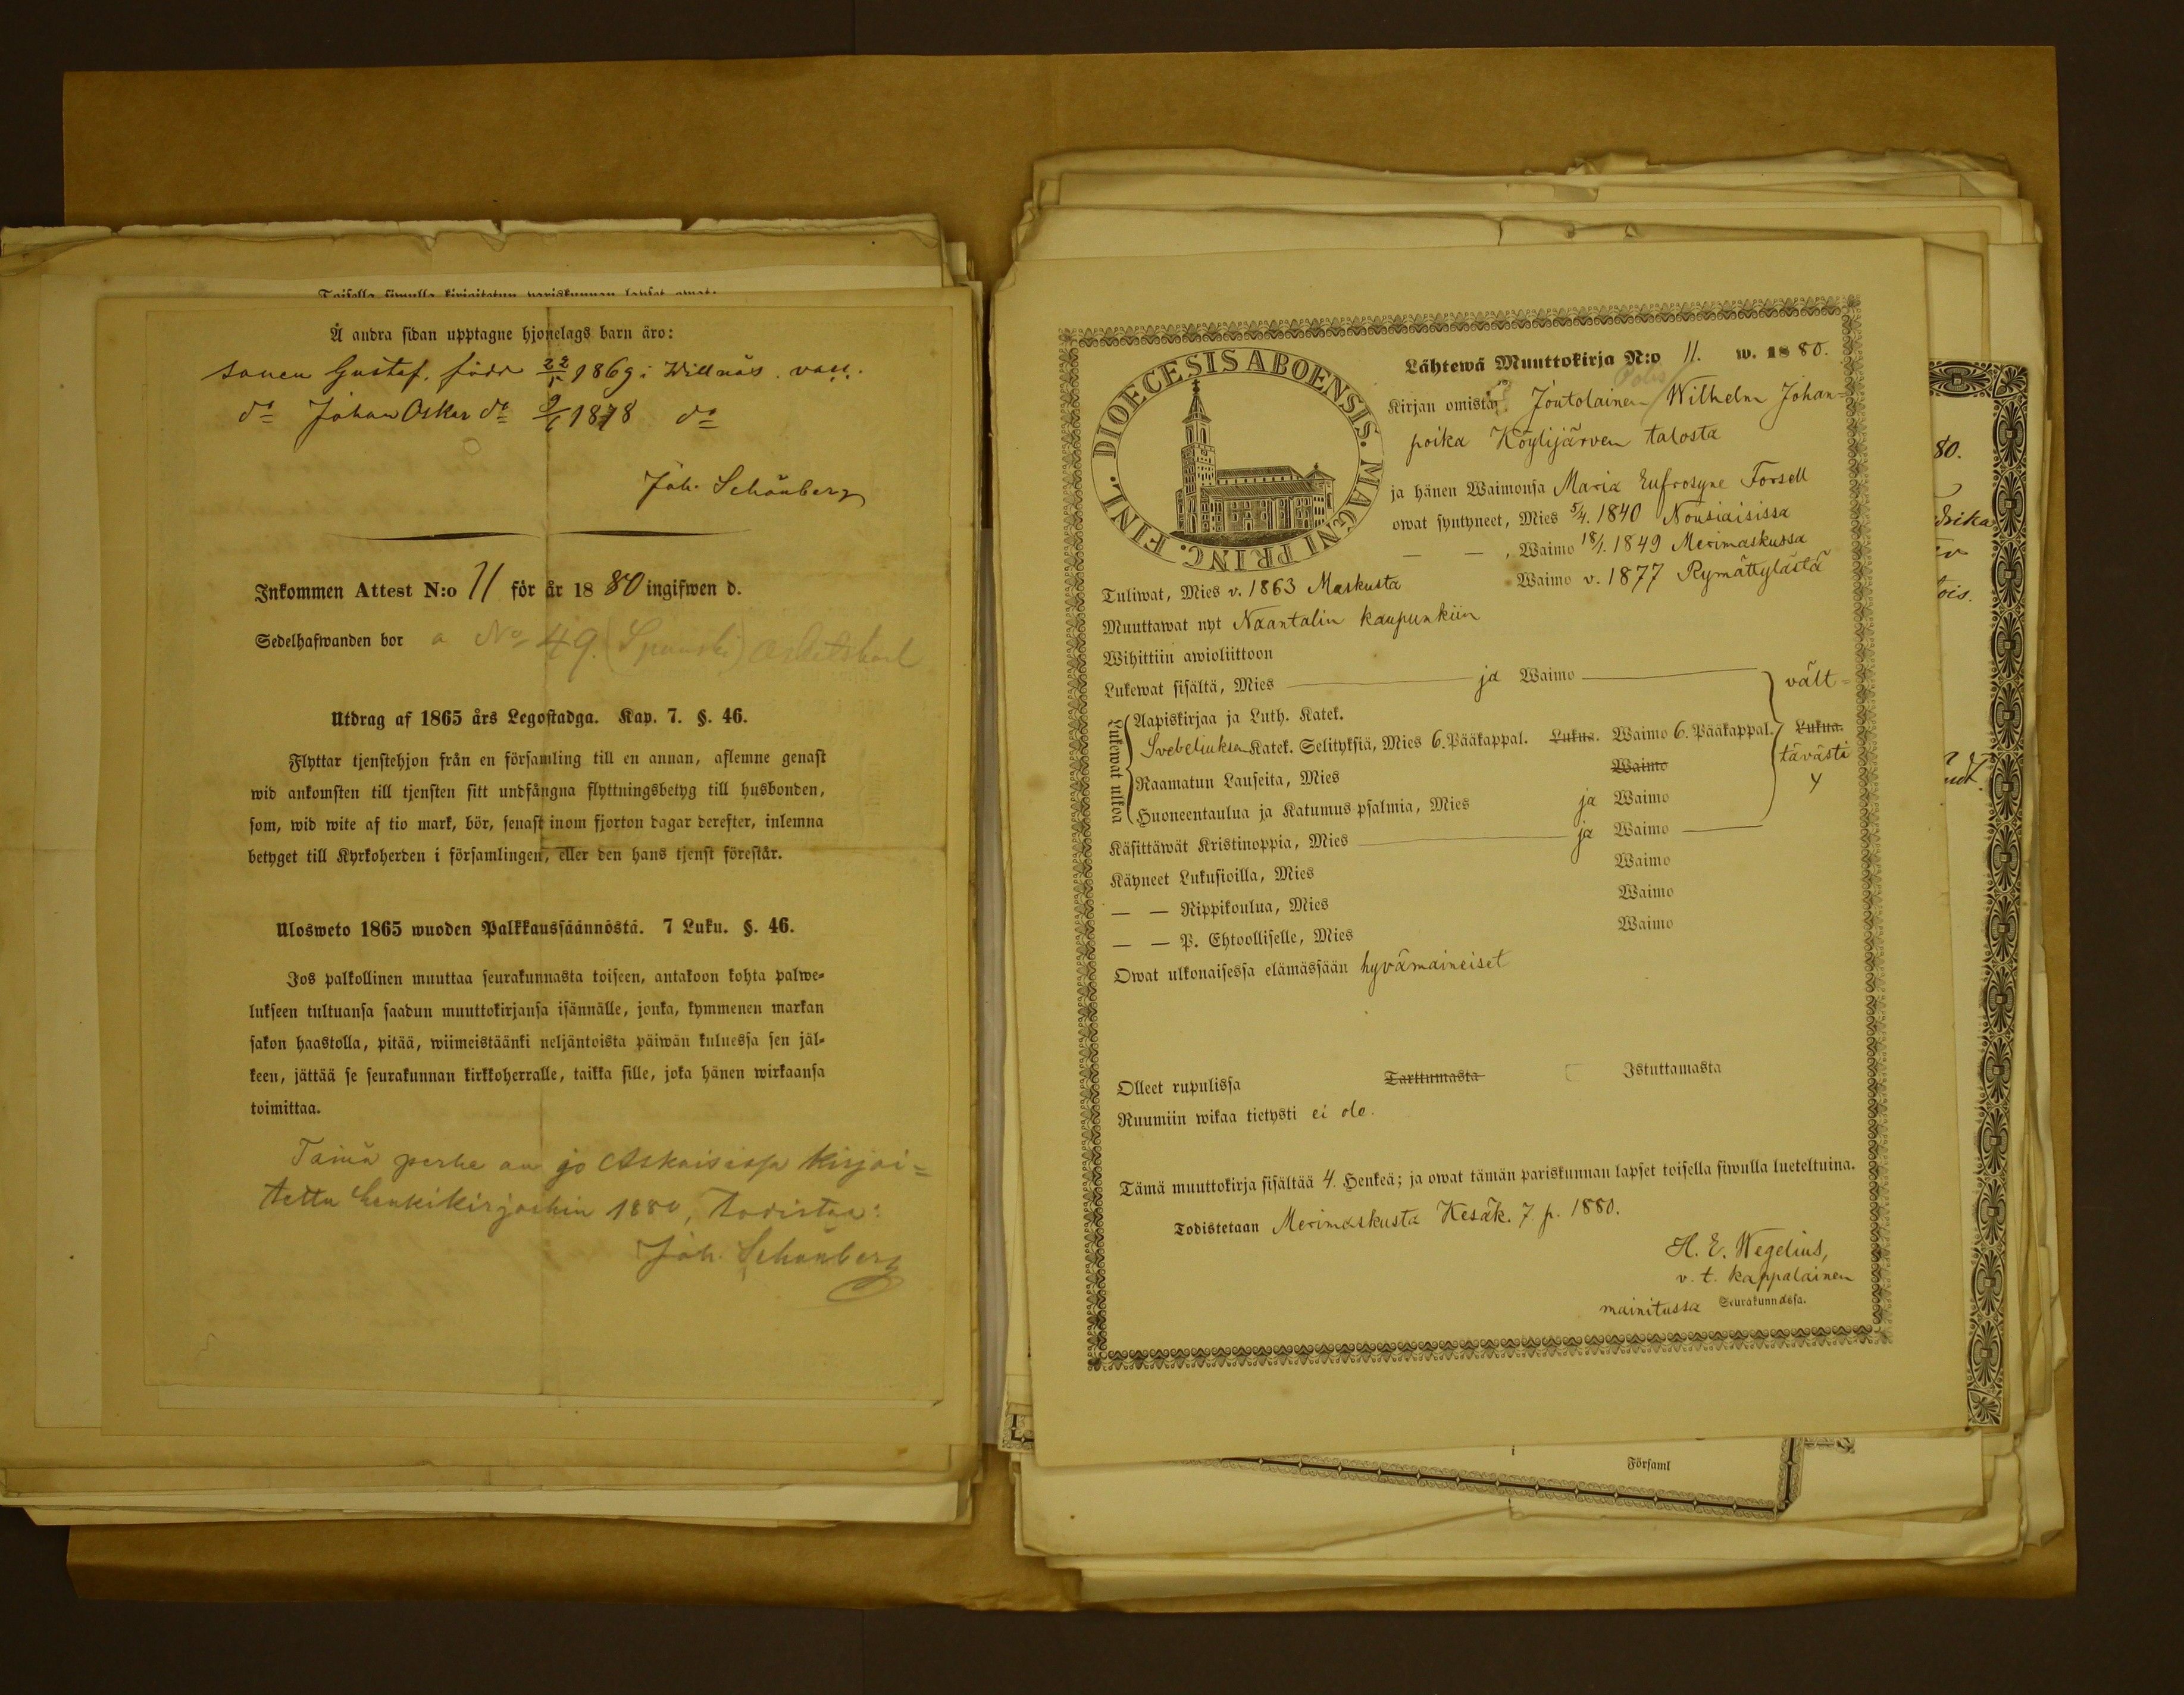 Toisella siwulla kirjoitetun pariskunnan lapset owat:
Å andra sidan upptagne hjonelags barn äro:
sonen Gustaf, född 22/5 1869 i Willnäs. vacc.
do Johan Oskar do 9/1 1878 do
Joh. Schönberg
Inkommen Attest N:o 11 för år 1880 ingifwen d.
Sedelhafwanden bor a No 49. (Spouski)
Utdrag af 1865 års Legostadga. Kap. 7. §. 46.
Flyttar tjenstehjon från en församling till en annan, aflemne genast
wid ankomsten till tjensten sitt undfångna flyttningsbetyg till husbonden,
som, wid wite af tio mark, bör, senast inom fjorton dagar derefter, inlemna
betyget till Kyrkoherden i församlingen, eller den hans tjenst förestår.
Ulosweto 1865 wuoden Palkkaussäännöstä. 7 Luku. §. 46.
Jos palkollinen muuttaa seurakunnasta toiseen, antakoon kohta palwe-
lukseen tultuansa saadun muuttokirjansa isännälle, jonka, kymmenen markan
sakon haastolla, pitää, wiimeistäänki neljäntoista päiwän kuluessa sen jäl-
keen, jättää se seurakunnan kirkkoherralle, taikka sille, joka hänen wirkaansa
toimittaa.
Tämä perhe on jo Askaisissa kirjoi-
tettu henkikirjoihin 1880, todistaa:
Joh. Schönberg
DIOECESIS ABOENSIS. MAGNI PRINC. FINL.
Lähtewä Muuttokirja N:o 11. w. 1880.
Kirjan omistaa Joutolainen Wilhelm Johan-
poika Köylijärven talosta
ja hänen Waimonsa Maria Eufrosyne Forsell
owat syntyneet, Mies 5/4. 1840 Nousiaisissa
— — , Waimo 18/1. 1849 Merimaskussa
Tuliwat, Mies v. 1863 Maskusta Waimo v. 1877 Rymättylästä
Muuttawat nyt Naantalin kaupunkiin
Wihittiin awioliittoon
Lukewat sisältä, Mies ja Waimo vält-
Lukewat ulkoa
Aapiskirjaa ja Luth. Katek.
Svebeliuksen Katek. Selityksiä, Mies 6. Pääkappal. Lukua. Waimo 6. Pääkappal. Lukua.
Waimo tävästi
Raamatun Lauseita, Mies
Huoneentaulua ja Katumus psalmia, Mies ja Waimo
Käsittäwät Kristinoppia, Mies ja Waimo
Käyneet Lukusioilla, Mies Waimo
— — Rippikoulua, Mies Waimo
— — P. Ehtoolliselle, Mies Waimo
Owat ulkonaisessa elämässään hyvämaineiset
Olleet rupulissa Tarttumasta Istuttamasta
Ruumiin wikaa tietysti ei ole.
Tämä muuttokirja sisältää 4. Henkeä; ja owat tämän pariskunnan lapset toisella siwulla lueteltuina.
Todistetaan Merimaskusta Kesäk. 7. p. 1880.
H. E. Wegelius,
v. t. kappalainen
mainitussa Seurakunnassa.
80.
drika
ois.
Församl